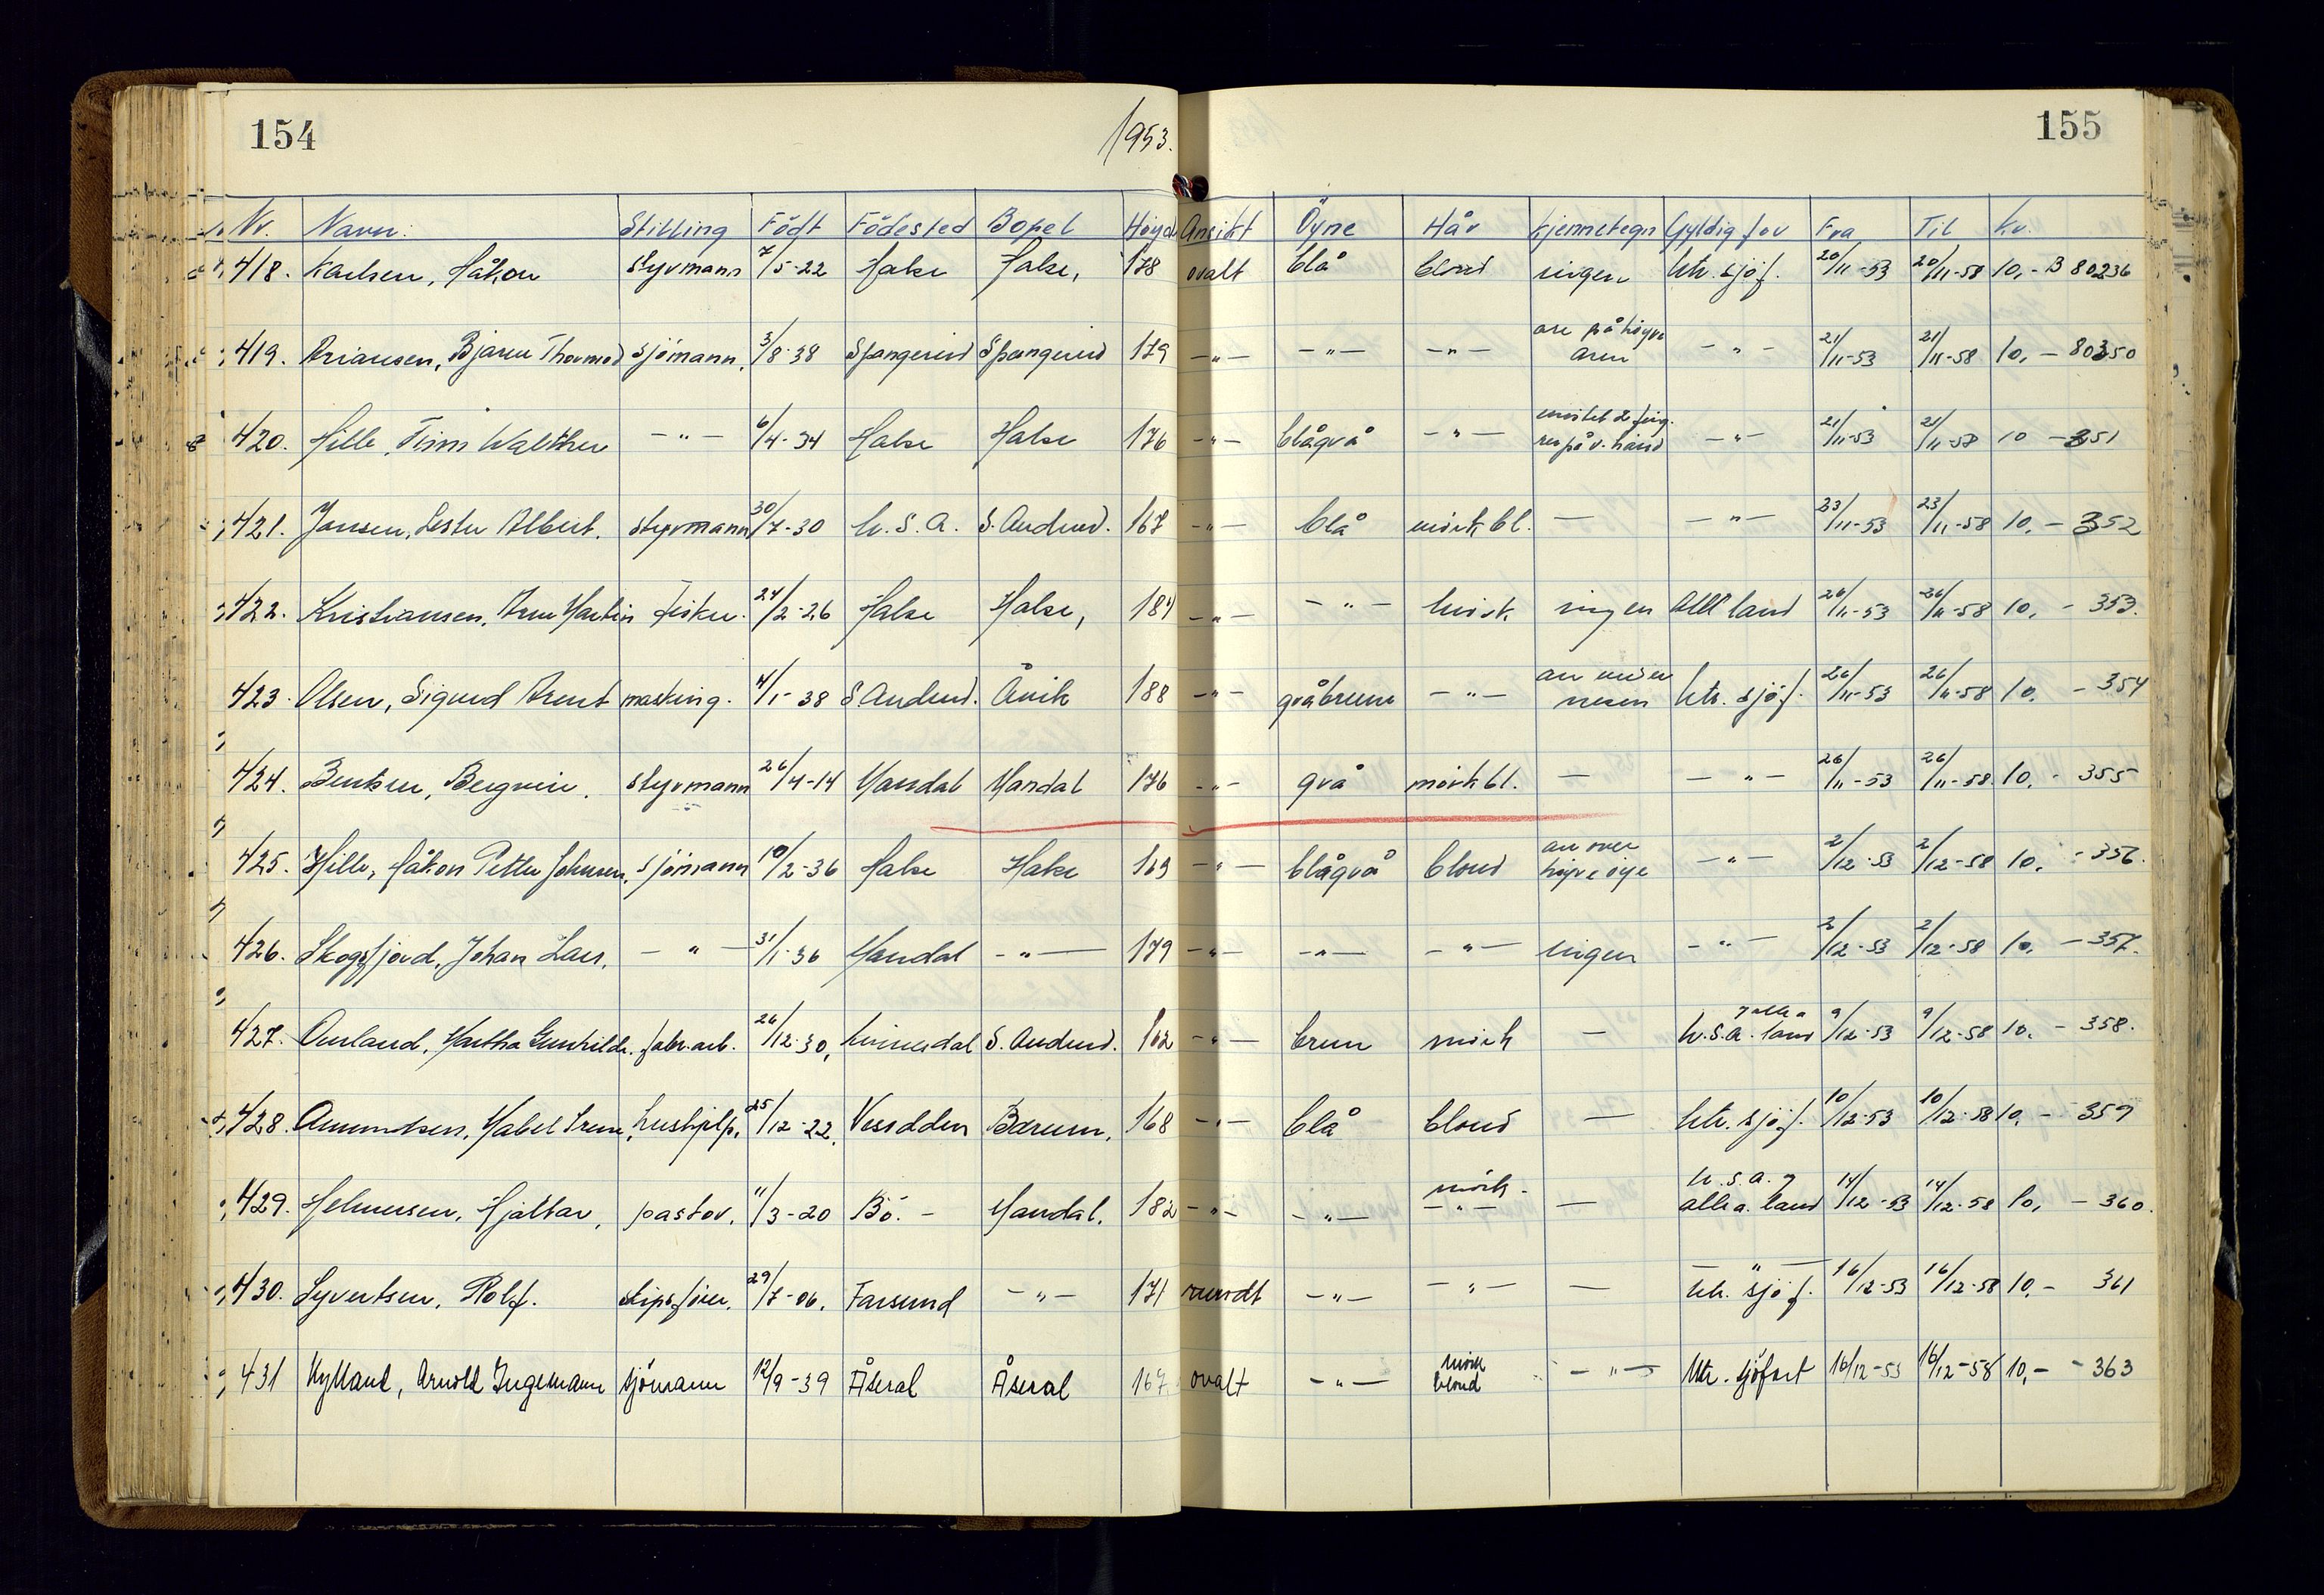 154
1953.
155
Nr. Navn: Stilling Födt Födested Bopel Höyde Ansikt Öyne Hår Kjennetegn Gyldig for Fra Til Kr.
418. Karlsen, Håkon styrmann 7/5-22 Halse Halse, 178 ovalt blå blond ingen utr. sjöf. 20/11-53 20/11-58 10,- B 80236
419. Ariansen, Bjarne Thormod sjömann, 3/8-38 Spangerid Spangerid 179 -"- -"- -"- arr på höyre arm -"- 21/11-53 21/11-58 10,- 80350
420. Hille, Finn Walther -"- 6/4-34 Halse Halse 176 -"- blågrå -"- mistet 2 fing. rer på v. hånd -"- 21/11-53 21/11-58 10 - 351
421. Jansen, Lester Albert. styrmann 30/7-30 U.S.A. S. Audned. 167 -"- blå mörk bl. - -"- 23/11-53 23/11-58 10,- 352
422. Kristiansen, Arne Martin fisker. 24/2-26 Halse Halse, 184 -"- -"- mörk ingen alle land 26/11-53 26/11-58 10,- 353.
423. Olsen, Sigurd Arent masking. 4/1-38 S. Audned. Åvik 188 -"- gråbrune -"- arr under nesen utr. sjöf. 26/11-53 26/11-58 10, - 354
424. Bentsen, Bergvin. styrmann 26/4-14 Mandal Mandal 176 -"- grå mörk bl. - -"- 26/11-53 26/11-58. 10, - 355
425. Hille, Håkon Petter Johnsen, sjömann 10/2-36 Halse Halse 169 -"- blågrå blond arr over höyre öye -"- 2/12-53 2/12-58 10, - 356.
426. Skogsfjord, Johan Lars. -"- 31/1-36 Mandal -"- 179 -"- -"- -"- ingen -"- 2/12-53 2/12-58 10, - 357.
427. Aurland, Martha Gunhilde. fabr.arb. 26/12-30, Kvinesdal S. Audned. 162 -"- brun mörk - U.S.A. og alle a. land 9/12-53 9/12-58 10, - 358.
428. Amundsen, Mabel Irene, hushjelp, 25/12-22, Bærum, 168 -"- blå blond - utr. sjöf. 10/12-53 10/12-58 10, - 359
429. Helmersen, Hjaltar, pastor, 11/3-20 Bö. - Mandal. 182 -"- -"- mörk -"- - U.S.A. og alle a. land 14/12-53 14/12-58 10, - 360.
430. Syvertsen, Rolf. skipsförer, 29/7-06, Farsund -"- 171 rundt -"- -"- - -"- utr. sjöf. 16/12-53 16/12-58 10,- 361
431 Kylland, Arnold Ingemann sjömann 12/9-39 Åseral Åseral 167 ovalt -"- mörk blond -"- Utr. sjöfart 16/12-53 16/12-58 10,- - 363